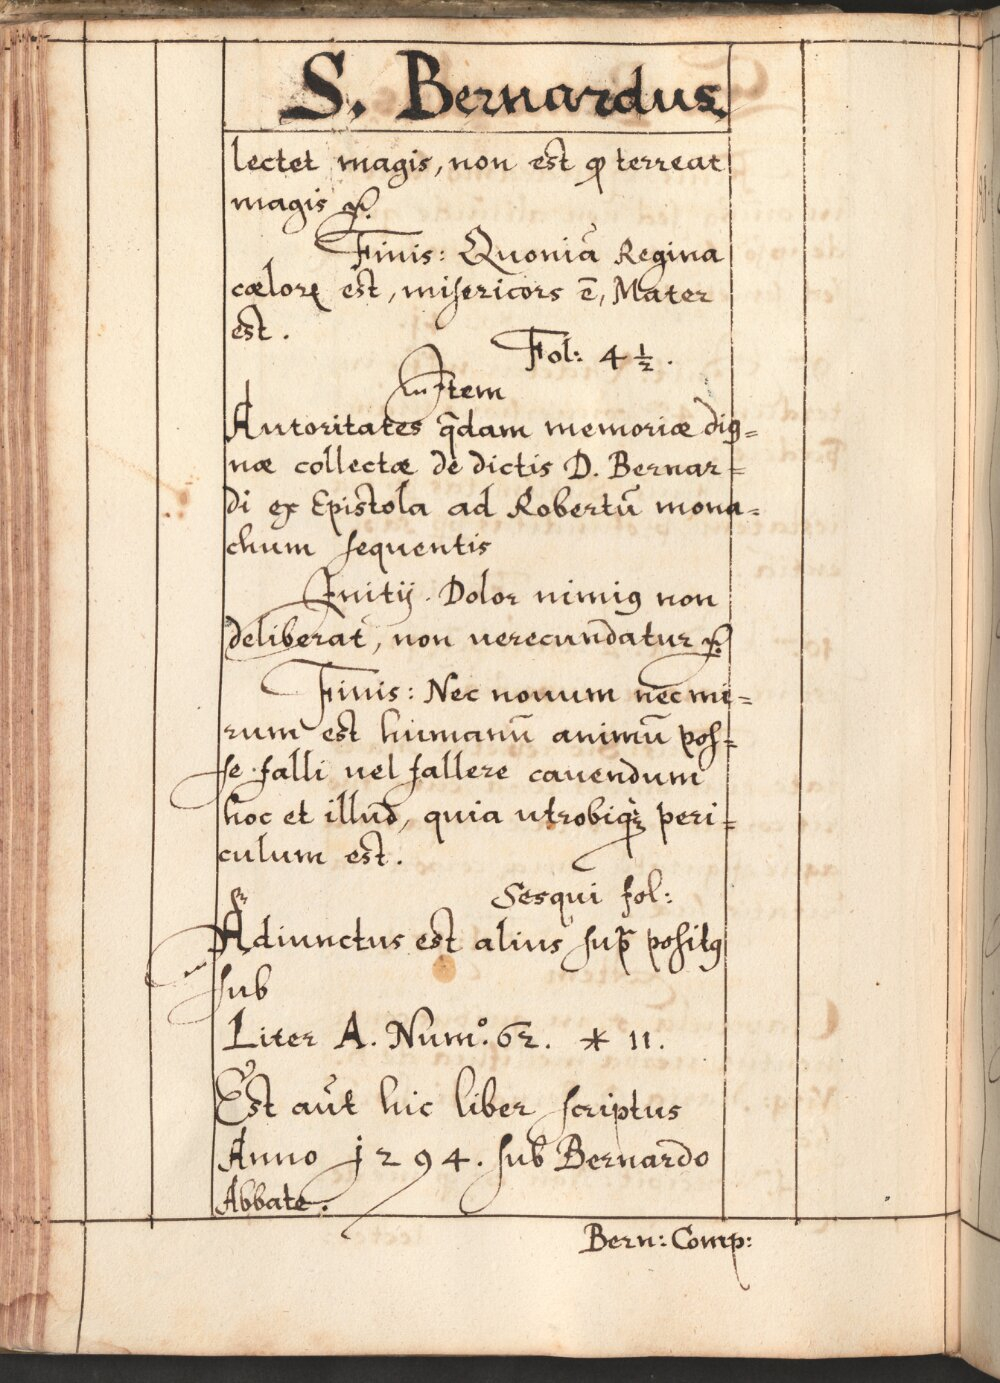 S. Bernardus
lectet magis, non est qͥ terreat
magis ꝛc.
Finis: Quoniā Regina
cæloꝝ est, misericors ē, Mater
est.
Fol: 4 ½.
Item
Autoritates q̄dam memoriæ dig=
næ collectæ de dictis D. Bernar=
di ex Epistola ad Robertū mona=
chum sequentis
Initij. Dolor nimiꝰ non
deliberat, non uerecundatur ꝛc.
Finis: Nec nouum nec mi=
rum est humanū animū pos=
se falli uel fallere cauendum
hoc et illud, quia utrobiqꝫ peri=
culum est.
Sesqui fol:
Adiunctus est alius sup̄ positꝰ
sub
Liter A. Num.º 62. * 11.
Est aūt hic liber scriptus
Anno 1294. sub Bernardo
Abbate.
Bern: Comp: